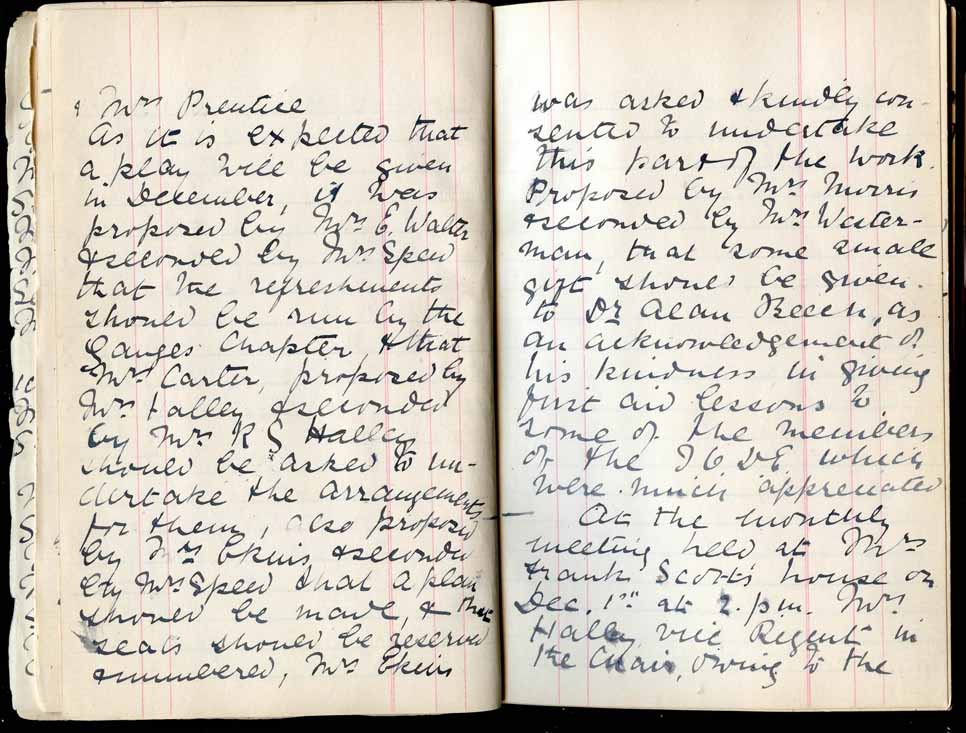 & Mrs Prentice
As it is expected that
a play will be given
in December, it was
proposed by Mrs E. Walter
& seconded by Mrs Speed
that the refreshments
should be run by the
Ganges Chapter, & that
Mrs Carter, proposed by
Mrs Halley & seconded
by Mrs K G Halley
should be asked to un-
dertake the arrangements
for them, also proposed
by Mrs Ekins & seconded
by Mrs Speed that a plan
should be made, & that
seats should be reserved
& numbered, Mrs Ekins
was asked & kindly con-
sented to undertake
this part of the work.
Proposed by Mrs Morris
& seconded by Mrs Wester-
man, that some small
gift should be given
to Dr Alan Beech, as
an acknowledgement of
his kindness in giving
first aid lessons to
some of the members
of the I O D E which
were much appreciated
At the monthly
meeting held at Mrs
Frank Scott's house on
Dec. 1st at 2. p.m. Mrs
Halley vice Regent in
the Chair, owing to the